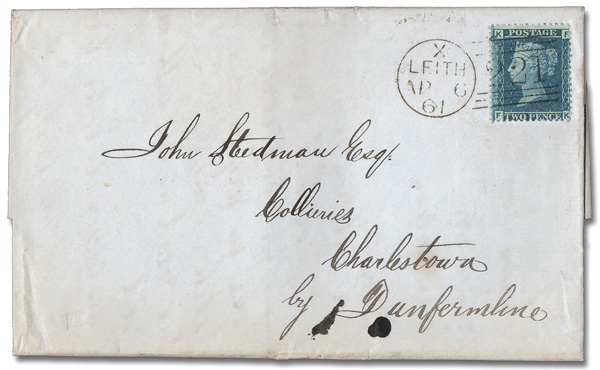 POSTAGE
K F
X
LEITH
AP 6
61
221
F TWO PENCE K
John Stedman Esqr.
Collieries
Charlestown
by Dunfermline